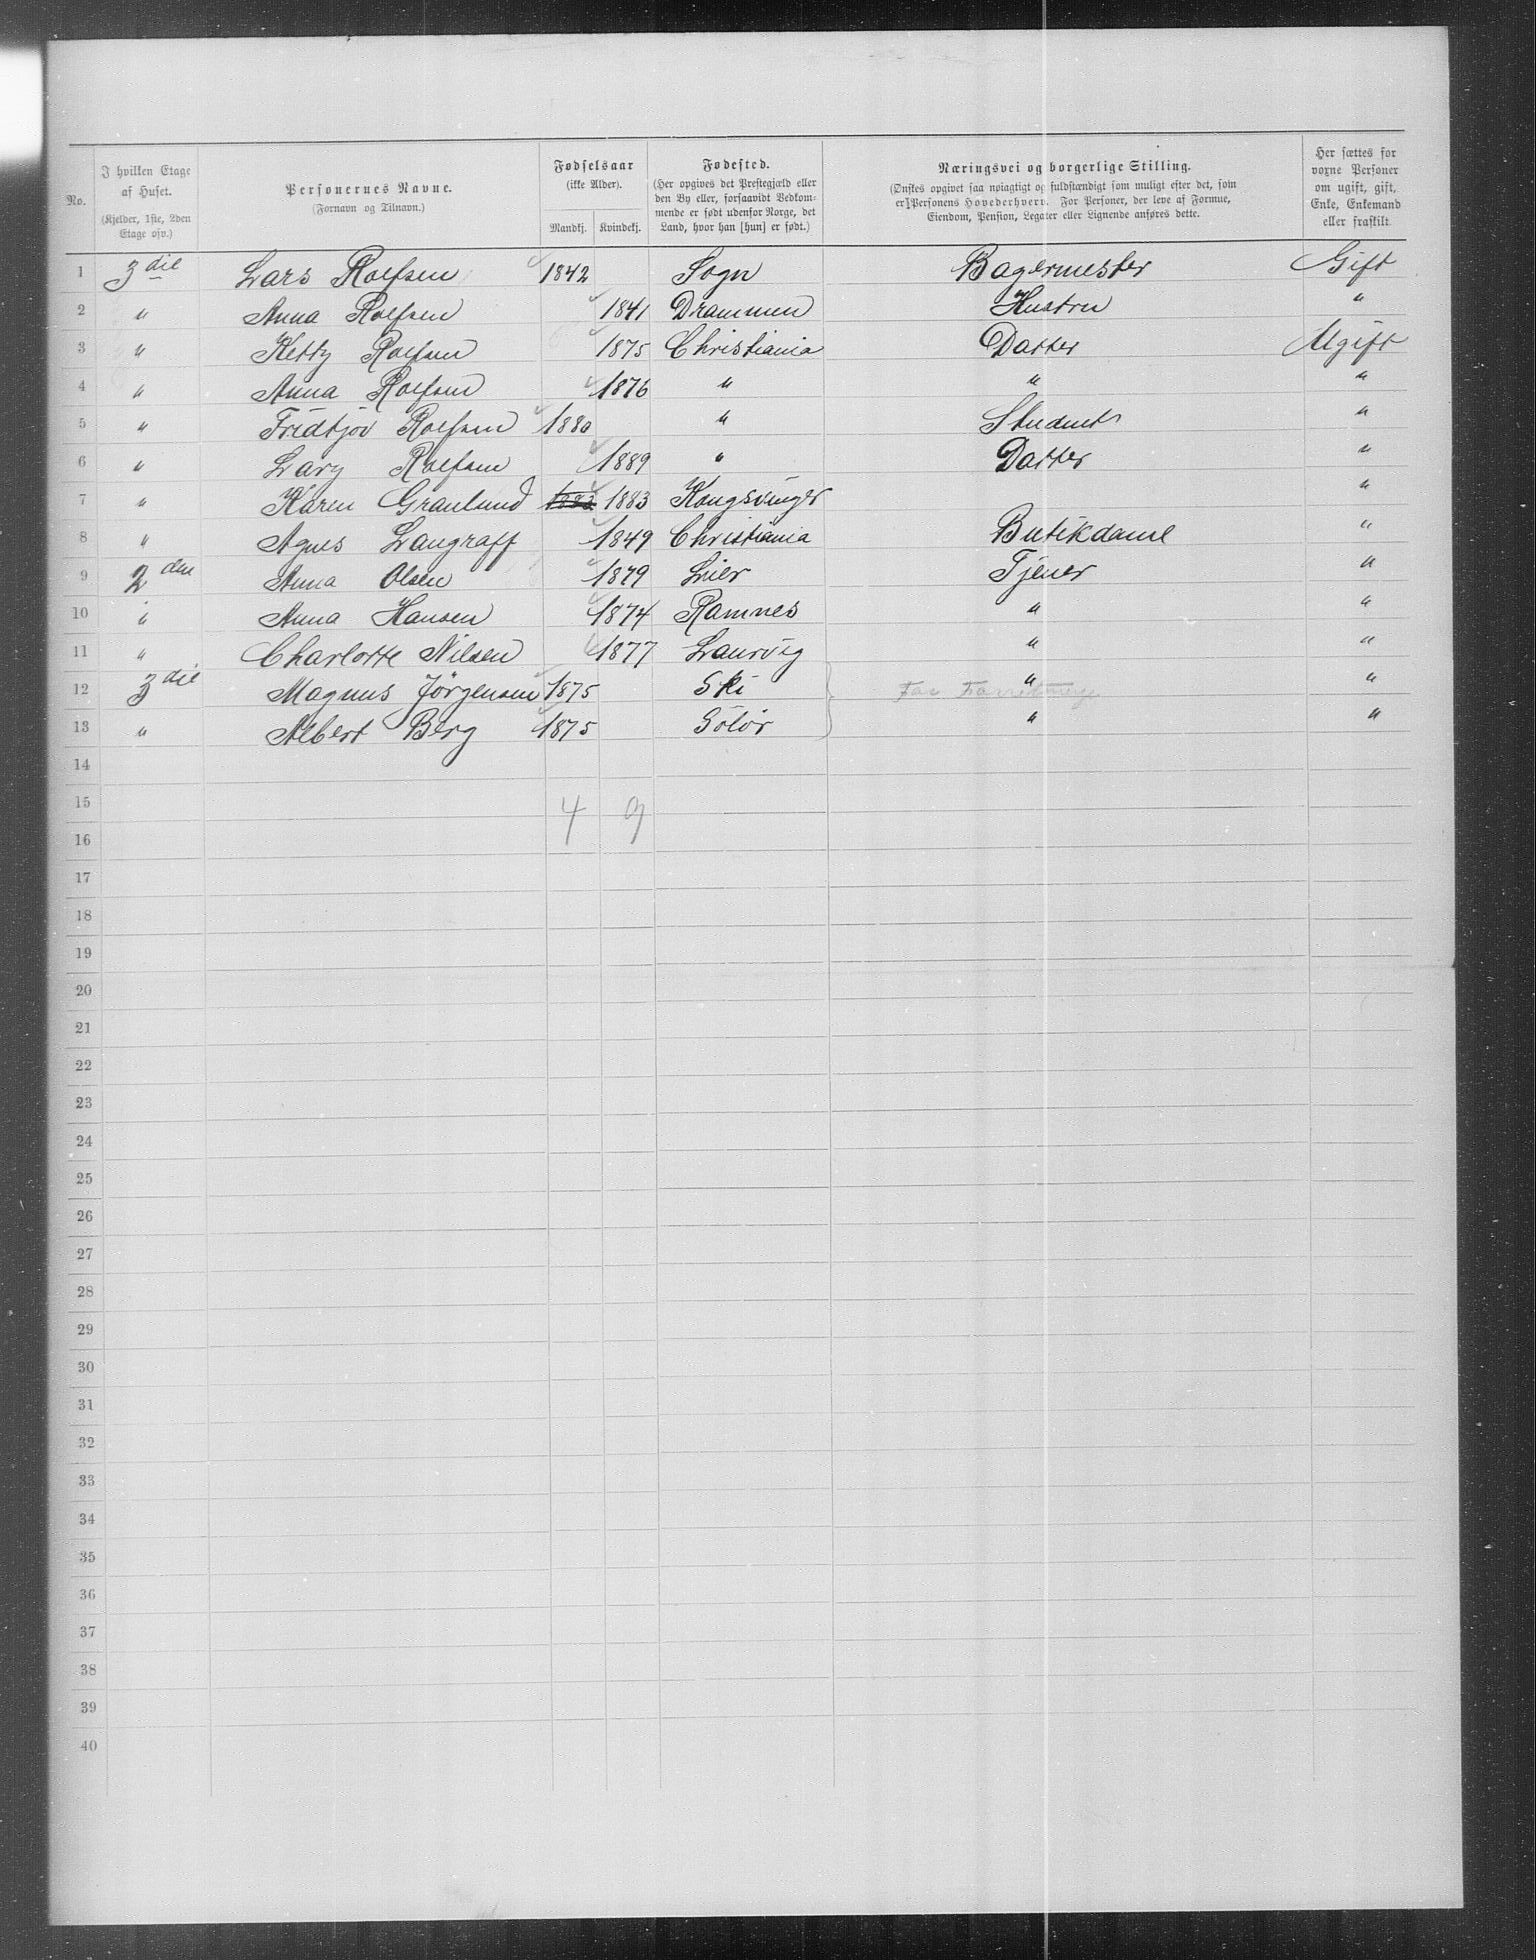 No.
I hvilken Etage af Huset. (Kjelder, 1ste, 2den Etage osv.)
Personernes Navne. (Fornavn og Tilnavn.)
Fødselsaar (ikke Alder). Mandkj. Kvindekj.
Fødested. (Her opgives det Prestegjæld eller den By eller, forsaavidt Vedkommende er født udenfor Norge, det Land, hvor han [hun] er født.)
Næringsvei og borgerlige Stilling. (Ønskes opgivet saa nøiagtigt og fuldstændigt som muligt efter det, som er Personens Hovederhverv. For Personer, der leve af Formue, Eiendom, Pension, Legater eller Lignende anføres dette.
Her sættes for voxne Personer om ugift, gift, Enke, Enkemand eller fraskilt.
1 3die Lars Rolfsen 1842 Sogn Bagermester Gift
2 " Anna Rolfsen 1841 Drammen Hustru "
3 " Ketty Rolfsen 1875 Christiania Datter Ugift
4 " Anna Rolfsen 1876 " " "
5 " Fridtjov Rolfsen 1880 " Student "
6 " Lary Rolfsen 1889 " Datter "
7 " Karen Granlund 1883 1883 Kongsvinger "
8 " Agnes Langraff 1849 Christiania Butikdame "
9 2den Anna Olsen 1879 Lier Tjener "
10 " Anna Hansen 1874 Ramnes " "
11 " Charlotte Nilsen 1877 Laurvig " "
12 3die Magnus Jörgensen 1875 Ski " "
13 " Albert Berg 1875 Solör " "
14
15
4 9
16
17
18
19
20
21
22
23
24
25
26
27
28
29
30
31
32
33
34
35
36
37
38
39
40